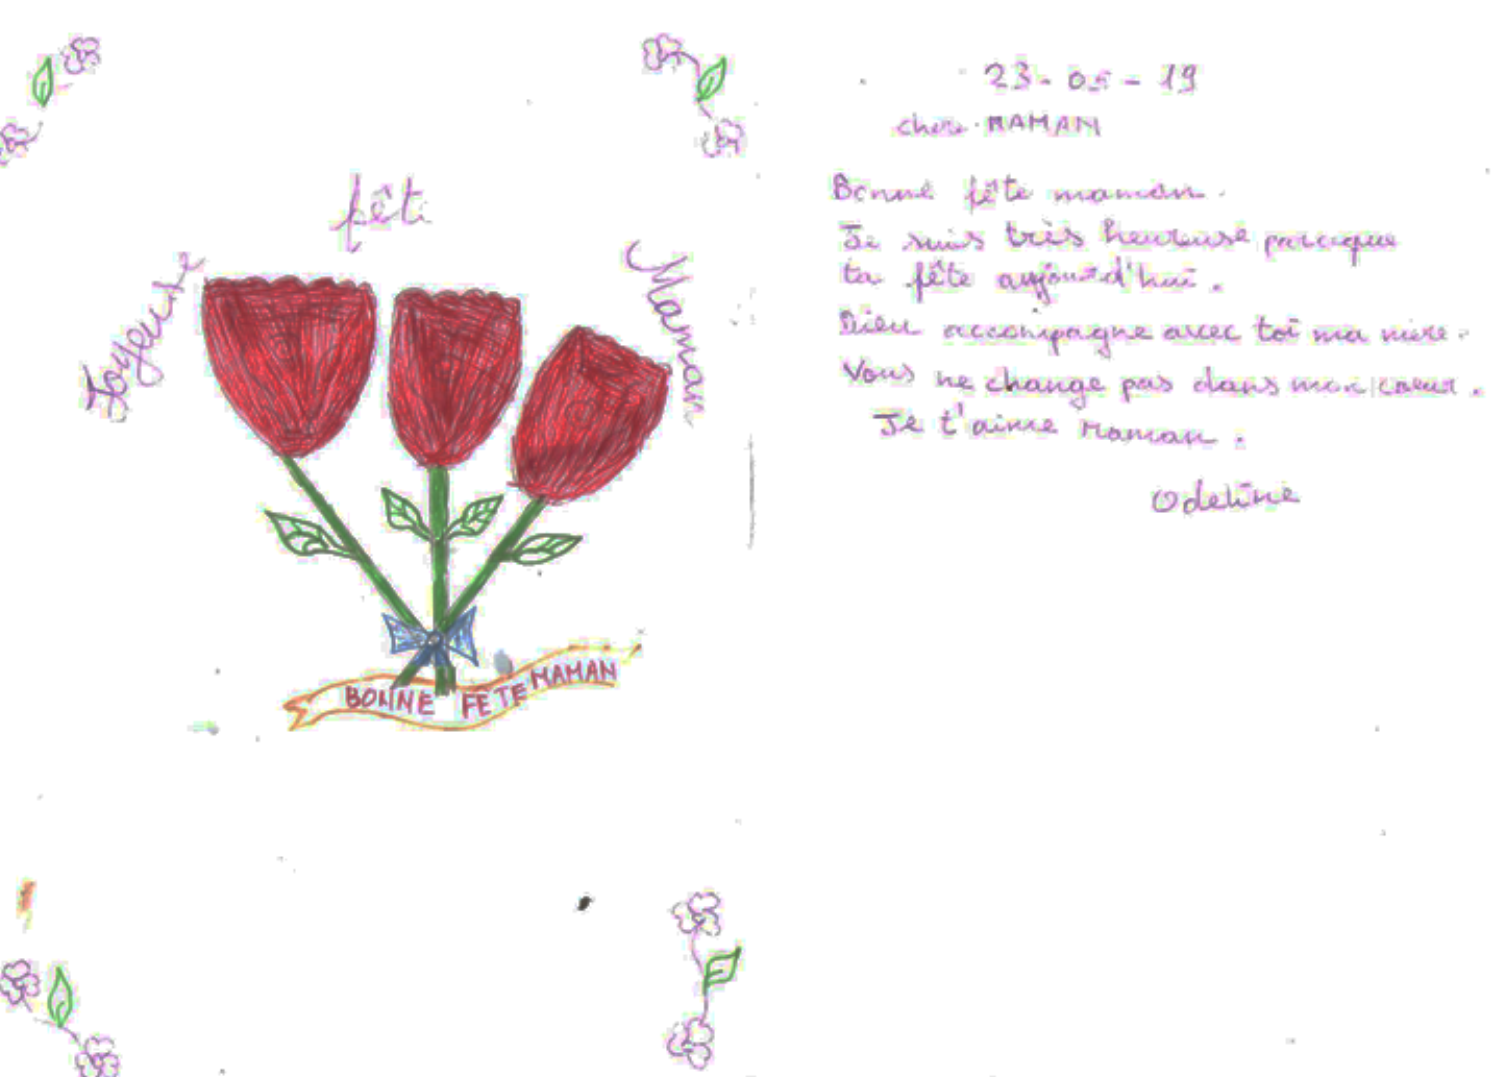 Joyeuse fête Maman
BONNE FETE MAMAN
23-05-19
chère MAMAN
Bonne fête maman.
Je suis très heureuse parceque
ta fête aujourd'hui.
Dieu accompagne avec toi ma mère.
Vous ne change pas dans mon cœur.
Je t'aime Maman.
Odeline